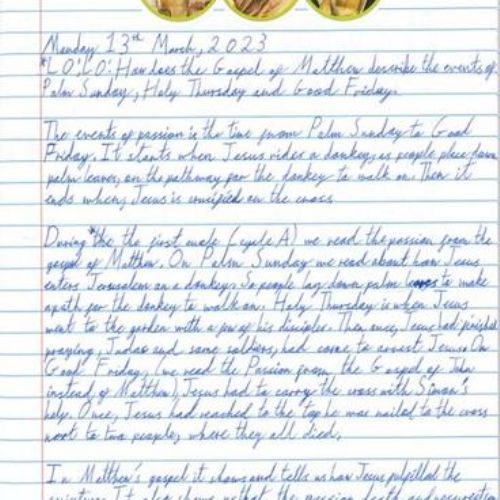 Monday 13th March, 2023
*L.O: L.O: How does the Gospel of Matthew describe the events of
Palm Sunday, Holy Thursday and Good Friday.
The events of passion is the time from Palm Sunday to Good
Friday. It starts when Jesus rides a donkey, as people place down
palm leaves, on the pathway for the donkey to walk on. Then it
ends when, Jesus is crucified on the cross.
During *the the first cycle (cycle A) we read the passion from the
gospel of Matthew. On Palm Sunday we read about how Jesus
enters Jerusalem on a donkey. So people lay down palm leaves to make
a path for the donkey to walk on. Holy Thursday is when Jesus
went to the garden with a few of his disciples. Then once, Jesus had finished
praying, Judas and some soldiers, had come to arrest Jesus. On
Good Friday, (we read the Passion from the Gospel of John
instead of Matthew), Jesus had to carry the cross with Simon's
help. Once, Jesus had reached to the top he was nailed to the cross
next to two people, where they all died.
In Matthew's gospel it shows and tells us how Jesus fulfilled the
It also shows us that the passion, death and